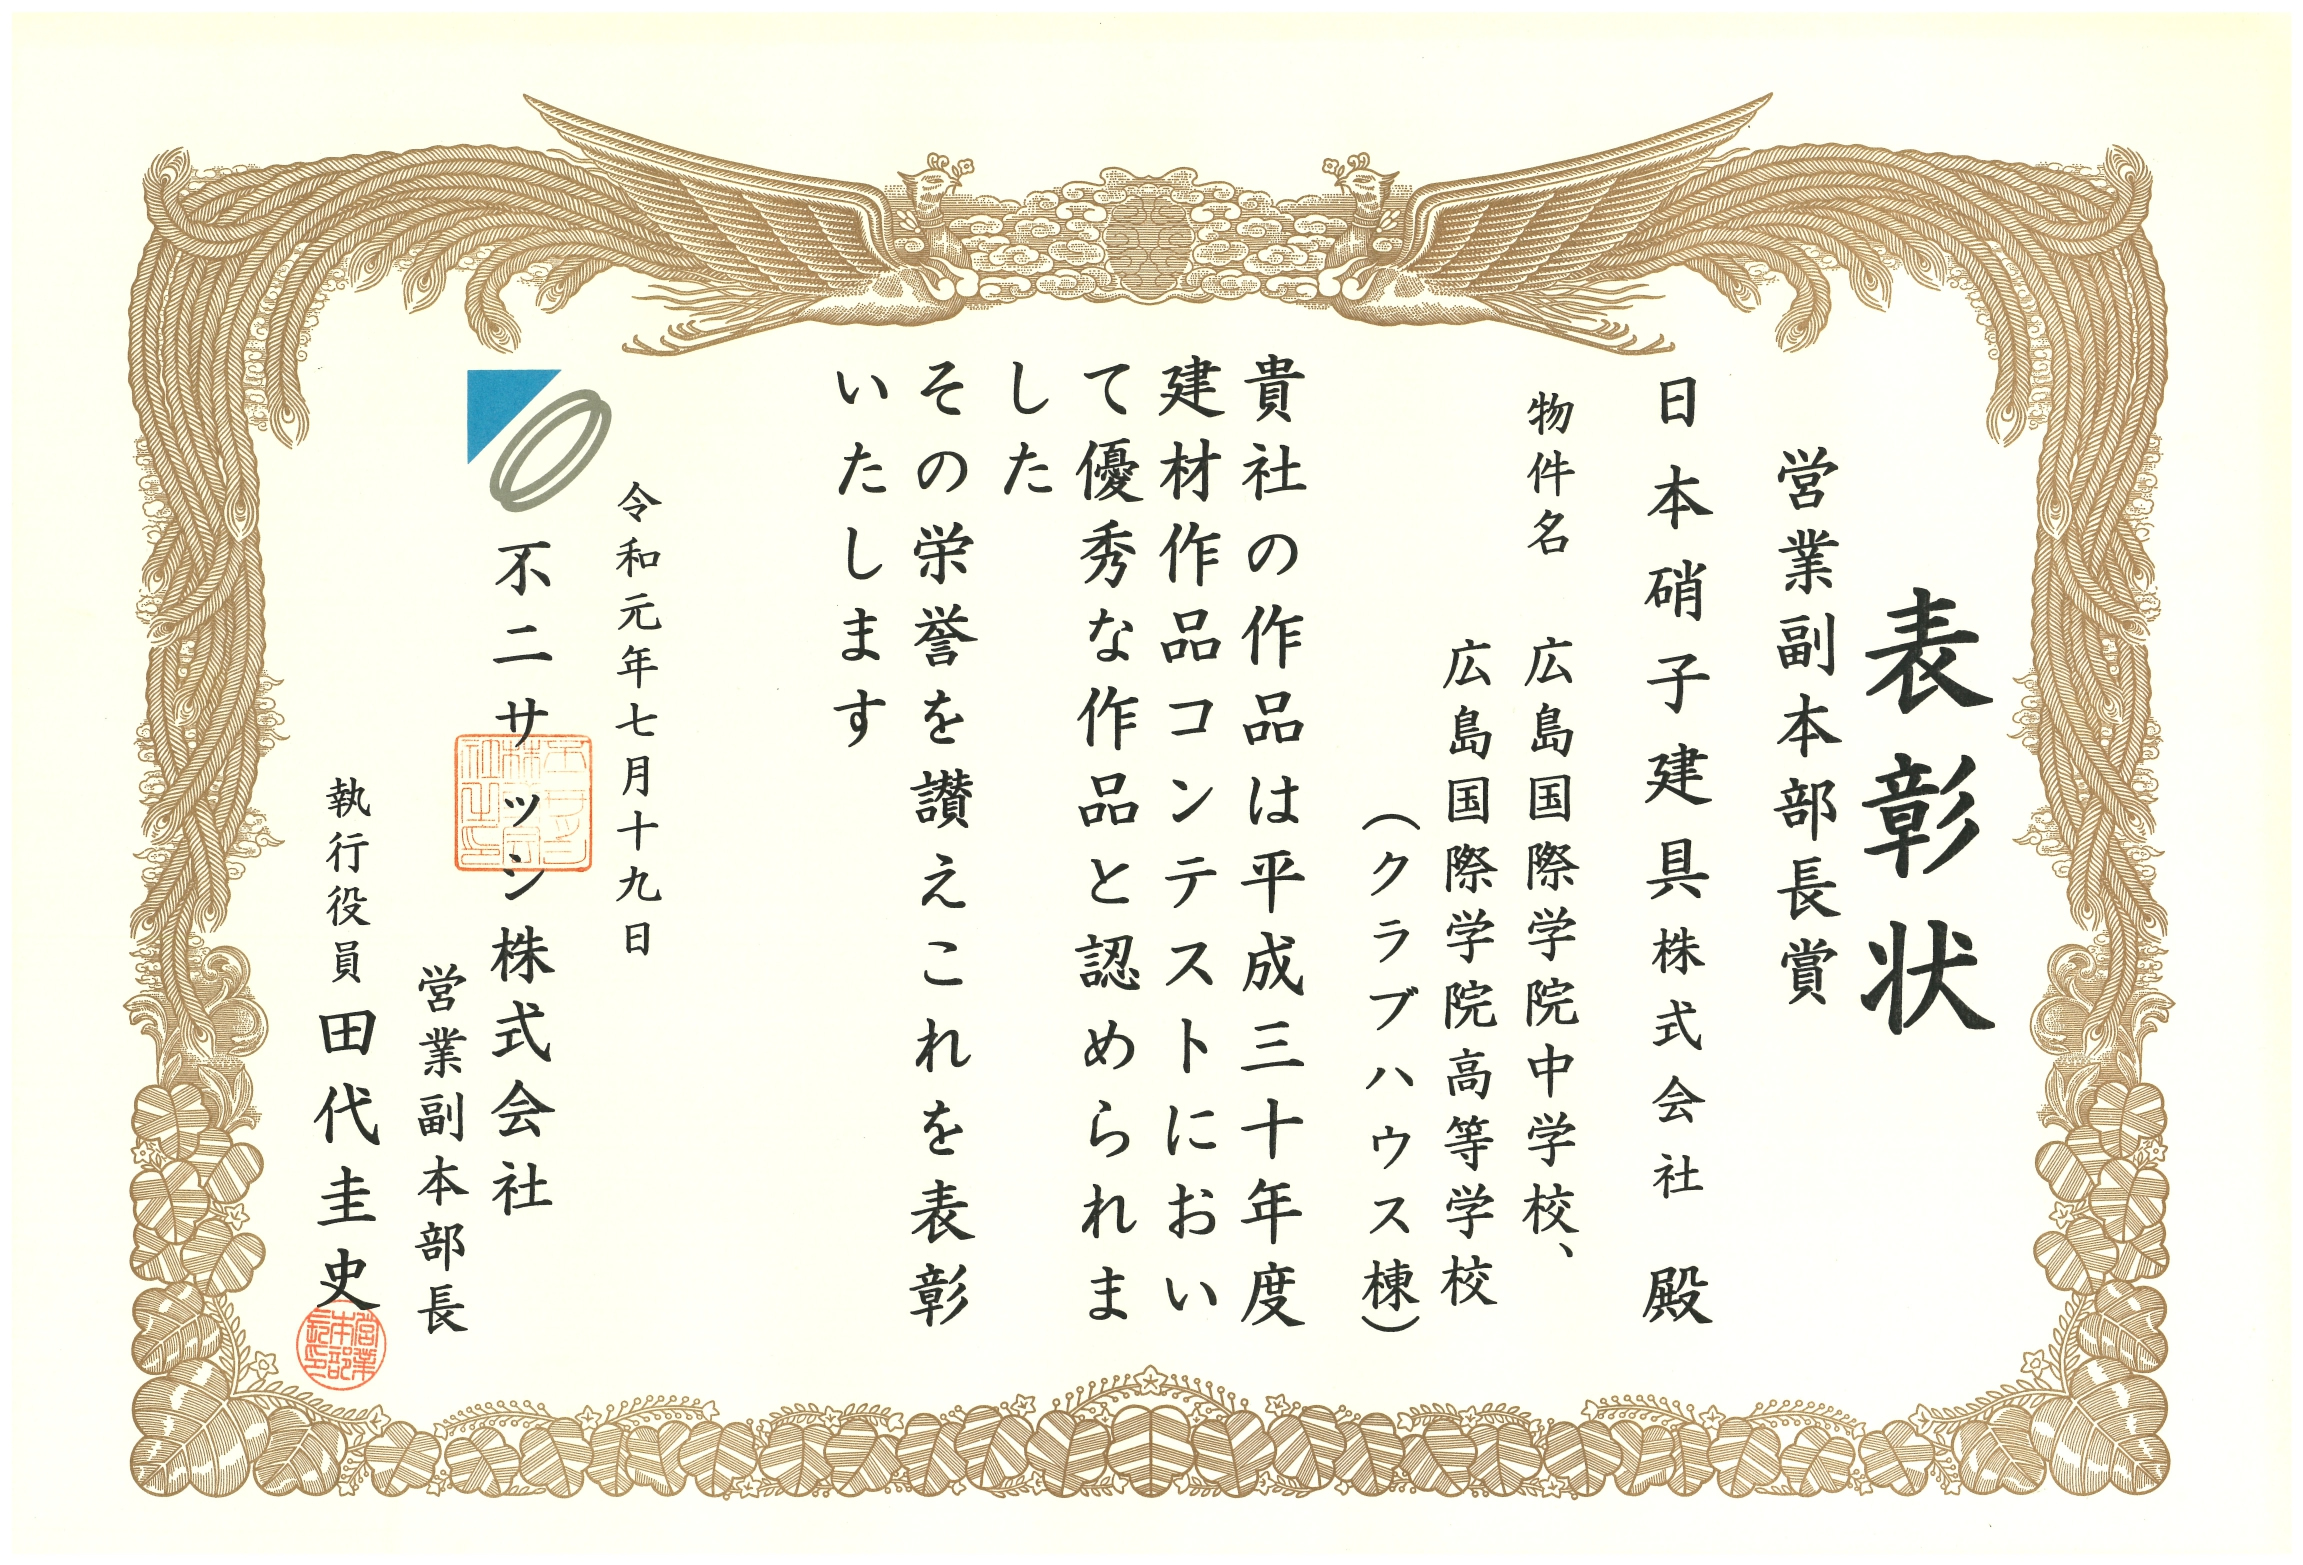 表彰状
営業副本部長賞
日本硝子建具株式会社 殿
物件名 広島国際学院中学校、
広島国際学院高等学校
（クラブハウス棟）
貴社の作品は平成三十年度
建材作品コンテストにおい
て優秀な作品と認められま
した
その栄誉を讃えこれを表彰
いたします
令和元年七月十九日
不二サッシ株式会社
営業副本部長
執行役員 田代圭史